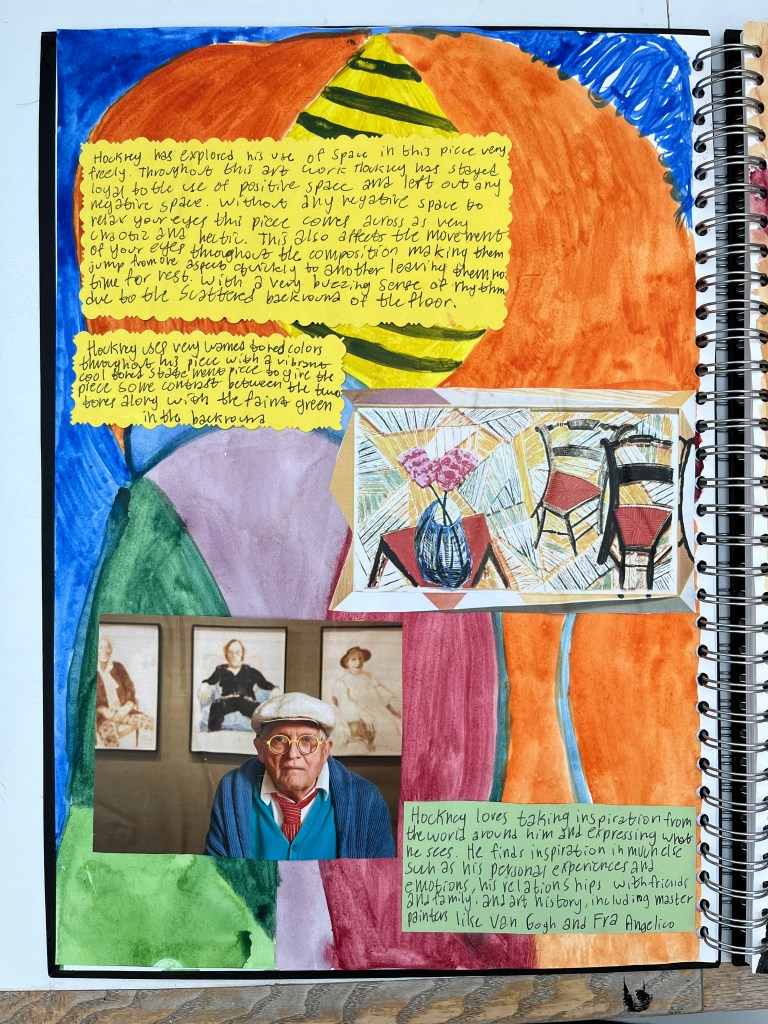 Hockney has explored his use of space in this piece very
freely. Throughout this art work Hockney has stayed
loyal to the use of positive space and left out any
negative space. Without any negative space to
relax your eyes this piece comes across as very
chaotic and hectic. This also affects the movement
of your eyes throughout the composition making them
jump from one aspect quickly to another leaving them no
time for rest. With a very buzzing sense of rhythm
due to the scattered backround of the floor.
Hockney uses very warmed toned colors
throughout his piece with a vibrant
cool toned statement piece to give the
piece some contrast between the two
tones along with the faint green
in the backround
Hockney loves taking inspiration from
the world around him and expressing what
he sees. He finds inspiration in much else
such as his personal experiences and
emotions, his relationships with friends
and family, and art history, including master
painters like Van Gogh and Fra Angelico